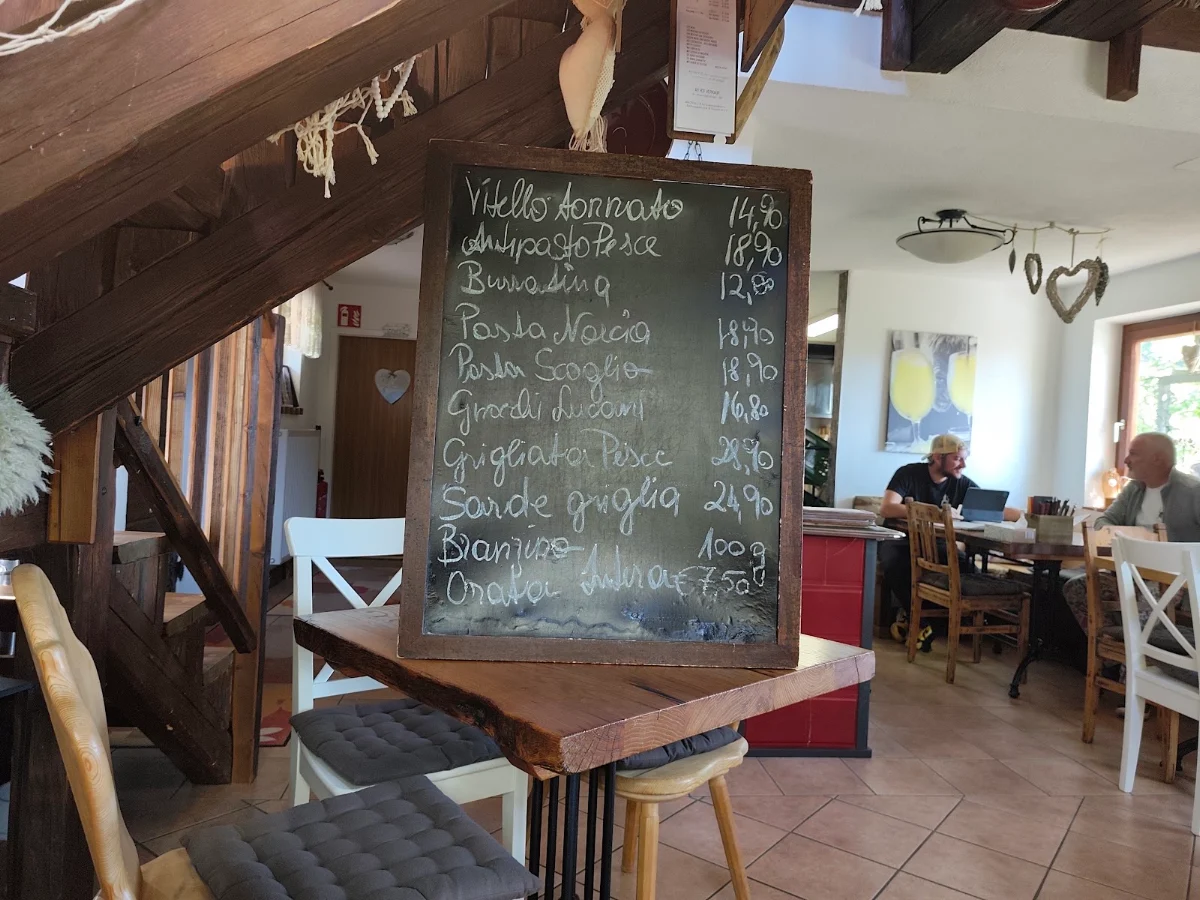 Vitello tonnato 14,90
Antipasto Pesce 18,90
Burratina 12,80
Pasta Norcia 18,90
Pasta Scoglio 18,90
Gnocchi Lucani 16,80
Grigliata Pesce 28,90
Sarde griglia 24,90
Branzino 100g
Orata Intera €7,50